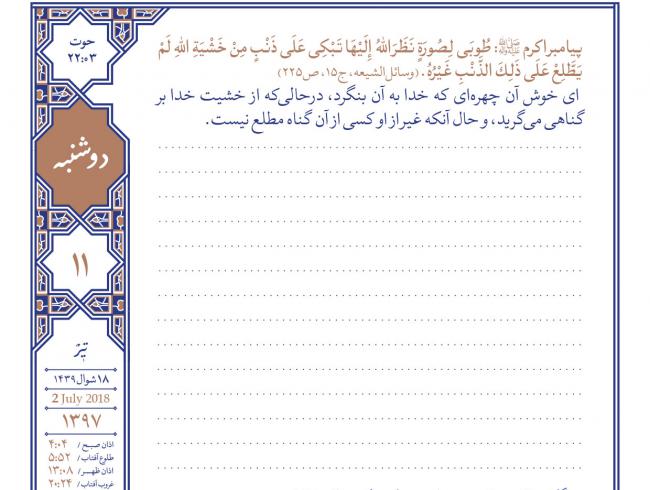 پیامبر اکرم ﷺ: طُوبَی لِصُورَةٍ نَظَرَاللهُ إِلَیْهَا تَبْکِی عَلَی ذَنْبٍ مِنْ خَشْیَةِ اللهِ لَمْ
یَطَّلِعْ عَلَی ذَلِكَ الذَّنْبِ غَیْرُهُ. (وسائل‌الشیعه، ج۱۵، ص۲۲۵)
ای خوش آن چهره‌ای که خدا به آن بنگرد، درحالی‌که از خشیت خدا بر
گناهی می‌گرید، و حال آنکه غیر از او کسی از آن گناه مطلع نیست.
حوت
۲۲:۵۳
دوشنبه
۱۱
تیر
۱۸ شوال ۱۴۳۹
2 July 2018
۱۳۹۷
اذان صبح / ۴:۰۴
طلوع آفتاب / ۵:۵۲
اذان ظهر / ۱۳:۰۸
غروب آفتاب / ۲۰:۲۴